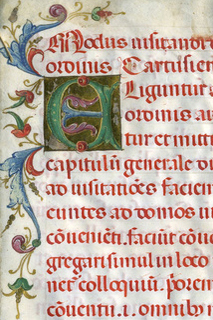 Modus visitandi
ordinis Cartusien
Eliguntur
ordinis au
tur et mitt
capitulū generale d
ad visitatiōes facien
euntes ad domos v
cōuenien. faciūt cōue
gregari simul in loco
uel colloquiū. porem
cōuentu. i. omnibus